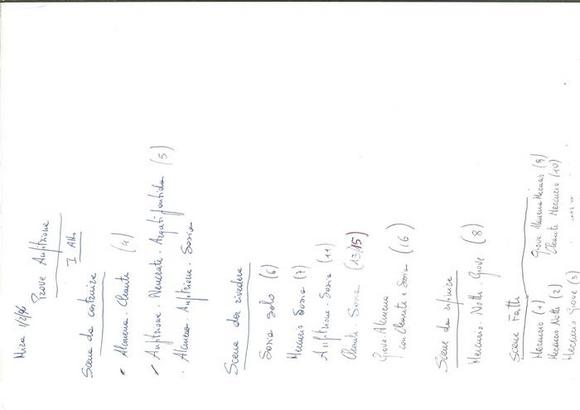 Prove Anfitrione
I Atto
Scene da costruire
Alcmena - Cleante (4)
Anfitrione - Neucrate - Argatifontida (5)
Alcmena - Anfitrione - Sosia
Scene da rivedere
Sosia solo (6)
Mercurio Sosia (7)
Anfitrione - Sosia (11)
Cleante - Sosia
Giove - Alcmena
con Cleante e Sosia (16)
Scene da
Mercurio - Notte - Giove (8)
Scene Fatte
Mercurio (1)
Mercurio Notte (2)
Mercurio Giove (3)
Giove Alcmena Mercurio (9)
Cleante Mercurio (10)